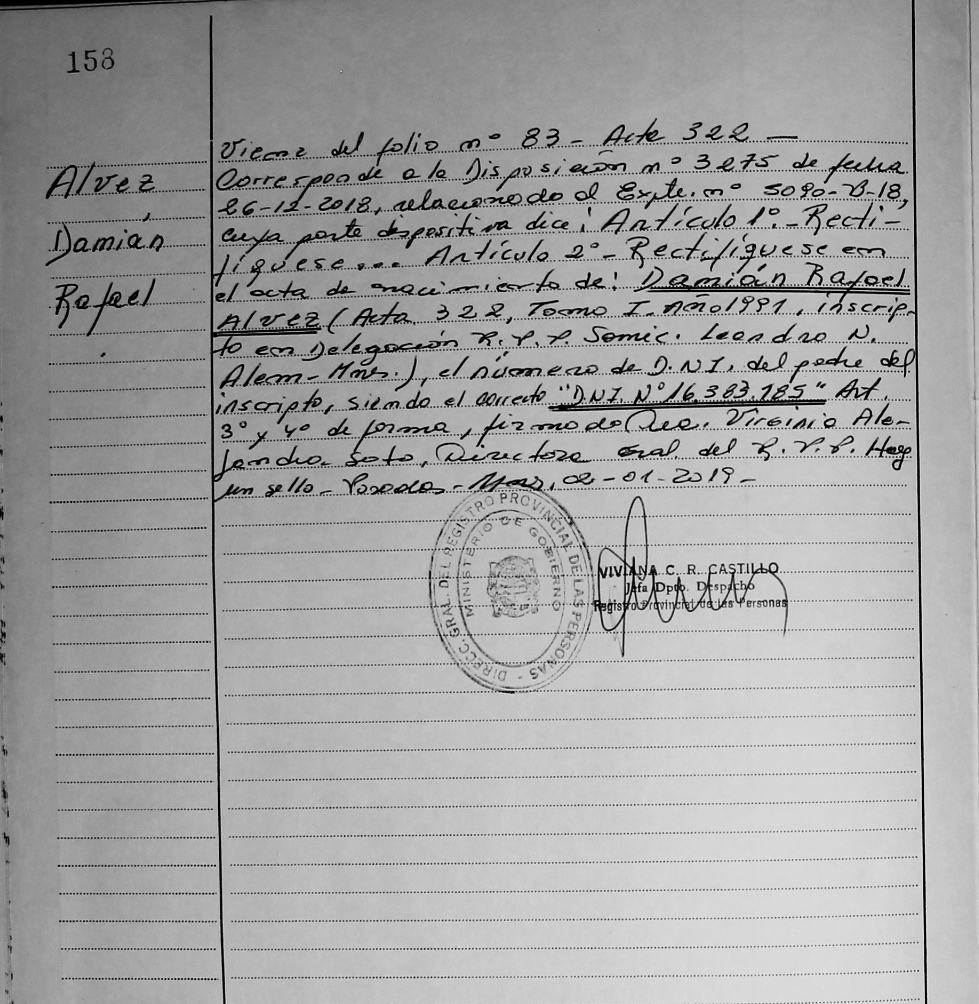 158
Alvez
,
Damian
Rafael
.
Viene del folio nº 83 - Acta 322 —
Corresponde a la Disposición nº 3275 de fecha
26-12-2018, relacionado al Expte. nº 5090-B-18,
cuya parte dispositiva dice: Artículo 1º.- Recti-
fíquese... Artículo 2º - Rectifíquese en
el acta de nacimiento de: Damián Rafael
Alvez (Acta 322, Tomo I. Año 1991, inscrip-
to en Delegación R.P.P. Semic. Leandro N.
Alem - Mnes.), el número de D.N.I. del padre del
inscripto, siendo el correcto "D.N.I. Nº 16.383.185" Art.
3º y 4º de forma, firmado Virginia Ale-
jandra Soto, Directora Gral. del R.P.P. Hay
un sello - Posadas - Mnes, 02-01-2019 -
DIRECC. GRAL. DEL REGISTRO PROVINCIAL DE LAS PERSONAS -
MINISTERIO DE GOBIERNO
VIVIANA C. R. CASTILLO
Jefa Dpto. Despacho
Registro Provincial de las Personas